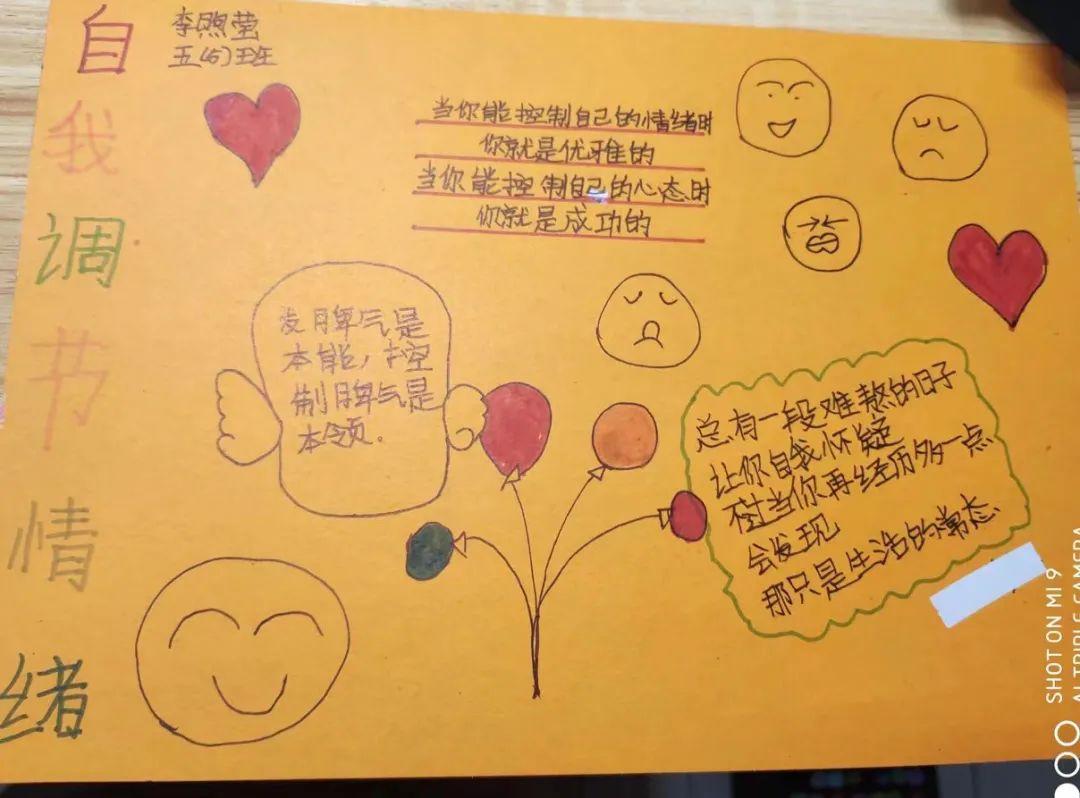 自我调节情绪
李 莹
五(5)班
当你能控制自己的情绪时
你就是优雅的
当你能控制自己的心态时
你就是成功的
发脾气是
本能,控
制脾气是
本领.
总有一段难熬的日子
让你自我怀疑
当你再经历多一点
会发现
那只是生活的常态
SHOT ON MI 9
AI TRIPLE CAMERA